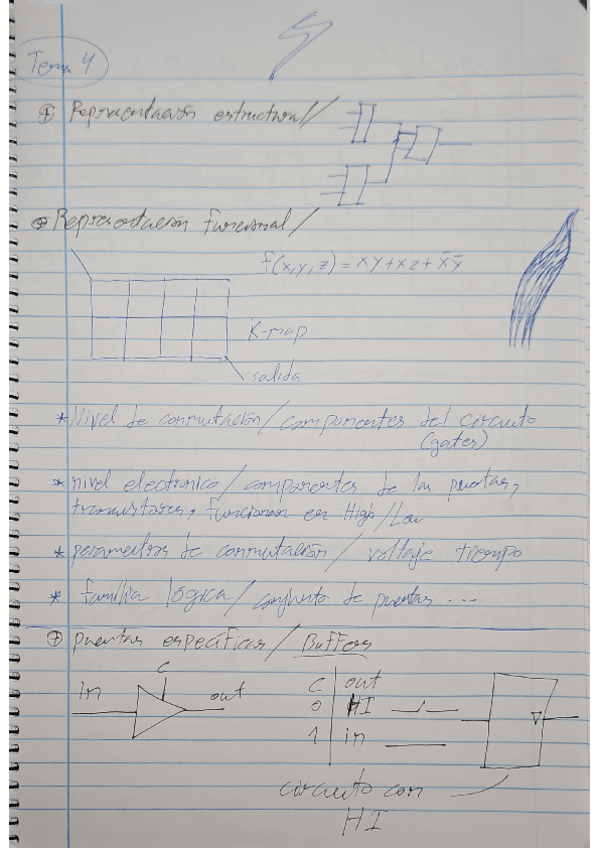 Tema 4
⊕ Representación estructural/
⊕ Representación funcional/
f(x,y,z) = xy+xz+x̄ȳ
K-map
salida
* Nivel de conmutación/componentes del circuito
(gates)
* nivel electronico/componentes de las puertas,
transistores, funcionan en High/Low
* parametros de conmutación/ voltaje tiempo
* familia lógica/conjunto de puertas ...
⊕ puertas específicas/ Buffers
in C out
C out
0 HI
1 in
circuito con
HI